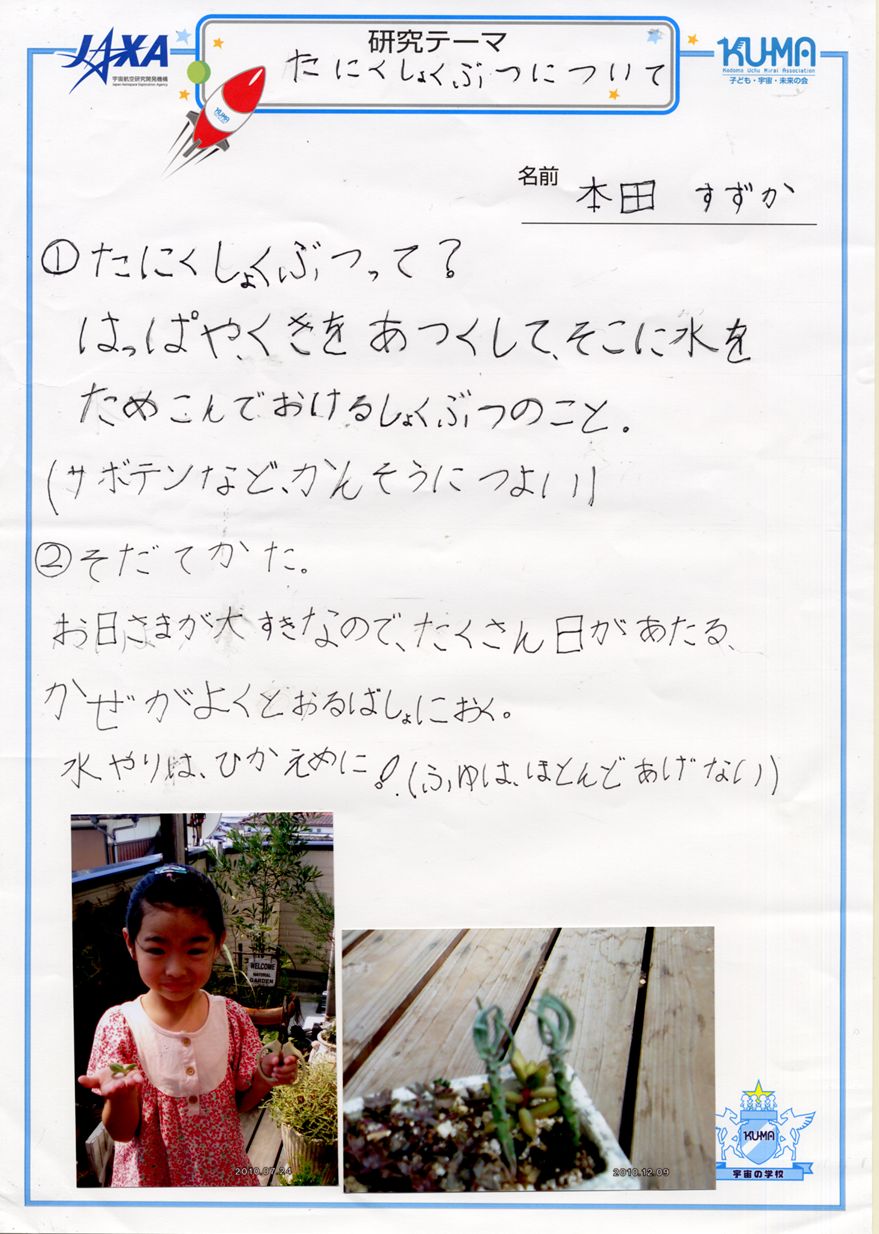 JAXA
宇宙航空研究開発機構
Japan Aerospace Exploration Agency
研究テーマ
たにくしょくぶつについて
KU-MA
Kodomo Uchu Mirai Association
子ども・宇宙・未来の会
KU-MA
名前 本田 すずか
①たにくしょくぶつって?
はっぱや、くきを あつくして、そこに水を
ためこんでおけるしょくぶつのこと。
(サボテンなど、かんそうに つよい)
②そだてかた。
お日さまが大すきなので、たくさん日があたる、
かぜがよくとおるばしょにおく。
水やりは、ひかえめに!(ふゆは、ほとんどあげない)
WELCOME
NATURAL
GARDEN
2010.07.24
2010.12.09
KU-MA
宇宙の学校